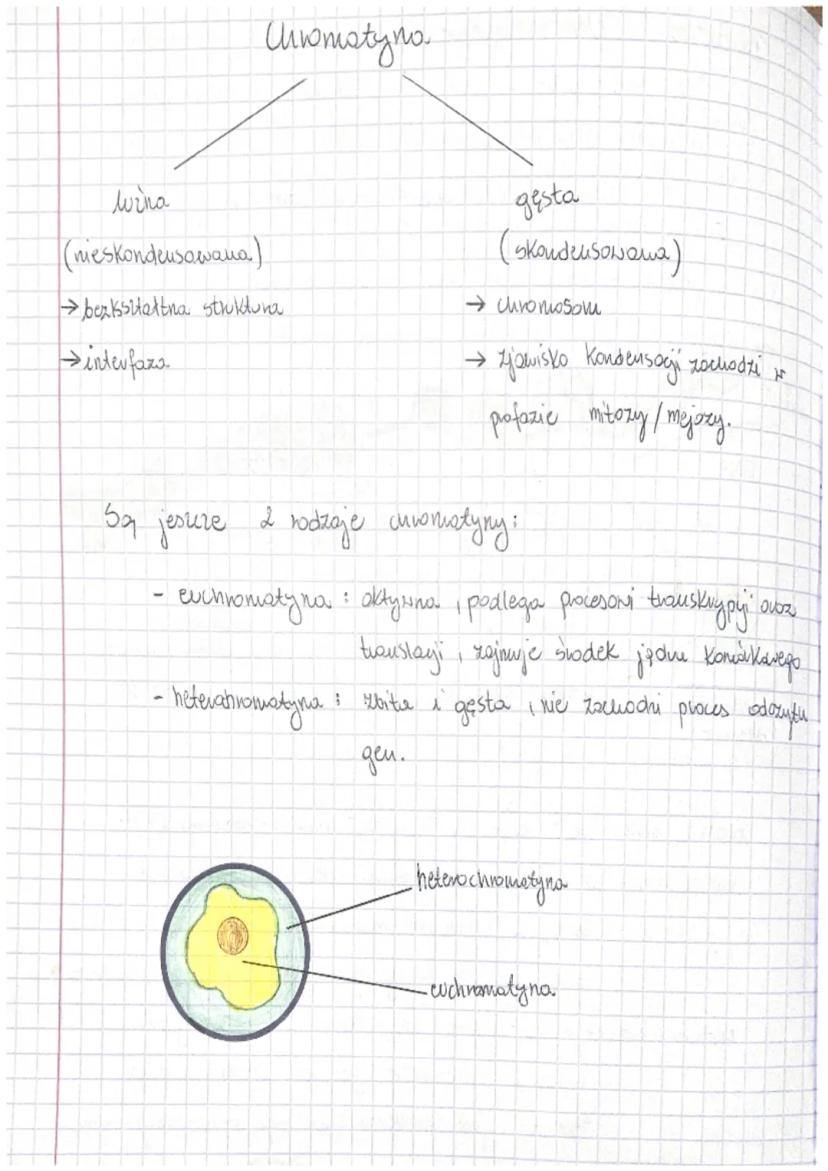 Chromatyna
luźna
gęsta
(nieskondensowana)
(skondensowana)
→ bezkształtna struktura
→ chromosom
→ interfaza
→ zjawisko kondensacji zachodzi w
profazie mitozy/mejozy.
Są jeszcze 2 rodzaje chromatyny:
- euchromatyna: aktywna, podlega procesowi transkrypcji oraz
translacji, zajmuje środek jądra komórkowego
- heterochromatyna: zbita i gęsta, nie zachodzi proces odczytu
gen.
heterochromatyna
euchromatyna